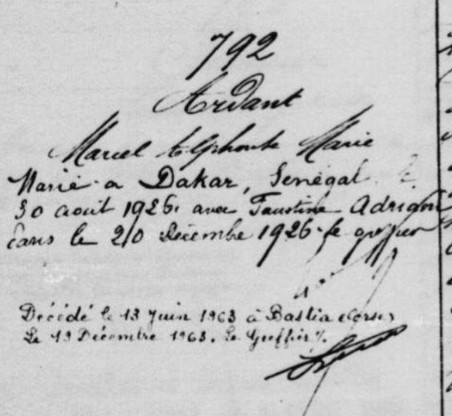 792
Ardant
Marcel Alphonse Marie
Marié à Dakar, Sénégal le
30 août 1926 avec Faustine Adrigna
Paris le 20 Décembre 1926 le greffier
Décédé le 13 Juin 1963 à Bastia (Corse)
Le 19 Décembre 1963. Le Greffier /.